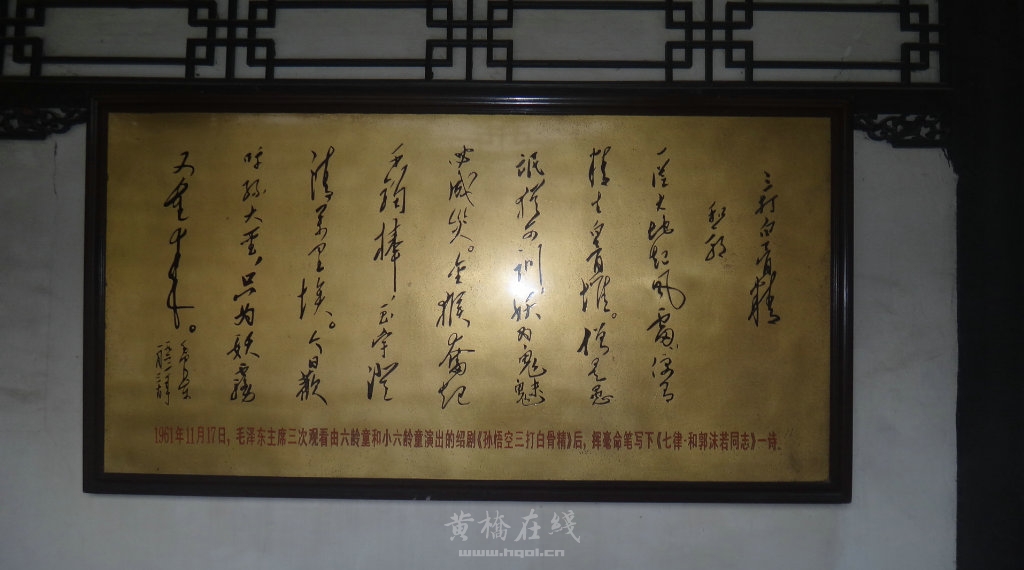 三打白骨精
和郭
一从大地起风雷便有
精生白骨堆。僧是愚
氓犹可训，妖为鬼魅
必成灾。金猴奋起
千钧棒，玉宇澄
清万里埃。今日欢
呼孙大圣，只为妖雾
又重来。
毛泽东
1961年11月17日，毛泽东主席三次观看由六龄童和小六龄童演出的绍剧《孙悟空三打白骨精》后，挥毫命笔写下《七律·和郭沫若同志》一诗。
黄橋在线
www.hqol.cn